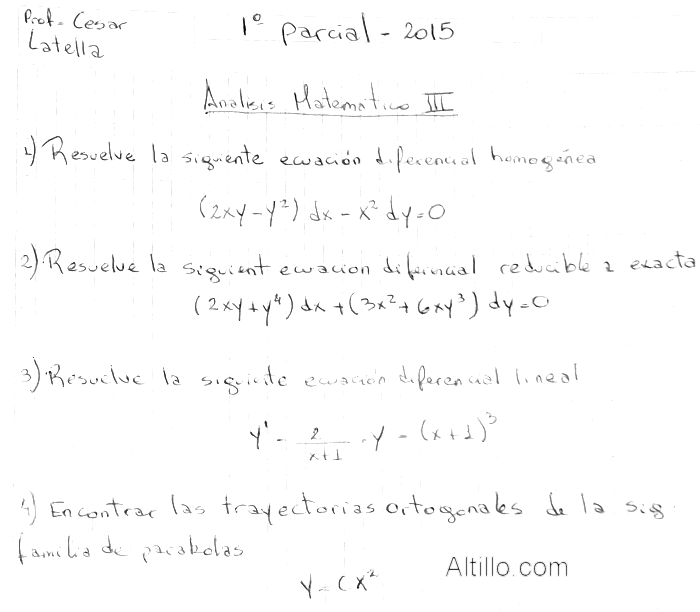 Prof. Cesar Latella
1º Parcial - 2015
Analisis Matematico III
1) Resuelve la siguiente ecuación diferencial homogénea
(2xy-y²) dx - x² dy=0
2) Resuelve la siguient ecuacion diferencial reducible a exacta
(2xy+y⁴) dx + (3x²+6xy³) dy=0
3) Resuelve la siguiente ecuación diferencial lineal
y' - 2/(x+1) · y = (x+1)³
4) Encontrar las trayectorias ortogonales de la sig.
familia de parabolas
y = Cx²
Altillo.com